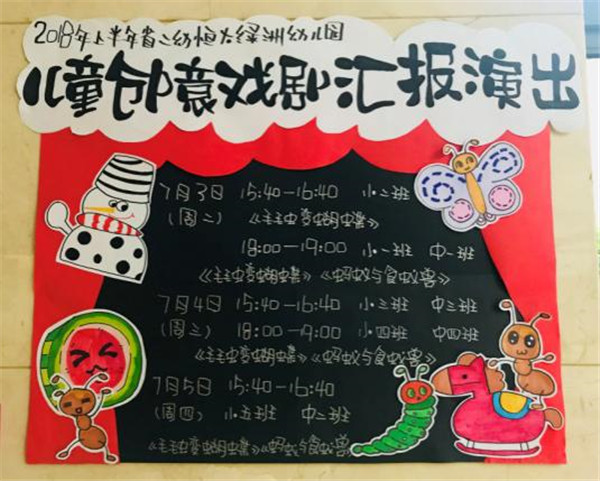 2018年上半年省二幼恒大绿洲幼儿园
儿童创意戏剧汇报演出
7月3日 15:40-16:40 小二班
(周二) 《毛毛虫变蝴蝶》
18:00-19:00 小一班 中一班
《毛毛虫变蝴蝶》《蚂蚁与食蚁兽》
7月4日 15:40-16:40 小三班 中三班
(周三) 18:00-19:00 小四班 中四班
《毛毛虫变蝴蝶》《蚂蚁与食蚁兽》
7月5日 15:40-16:40
(周四) 小五班 中二班
《毛毛虫变蝴蝶》《蚂蚁与食蚁兽》